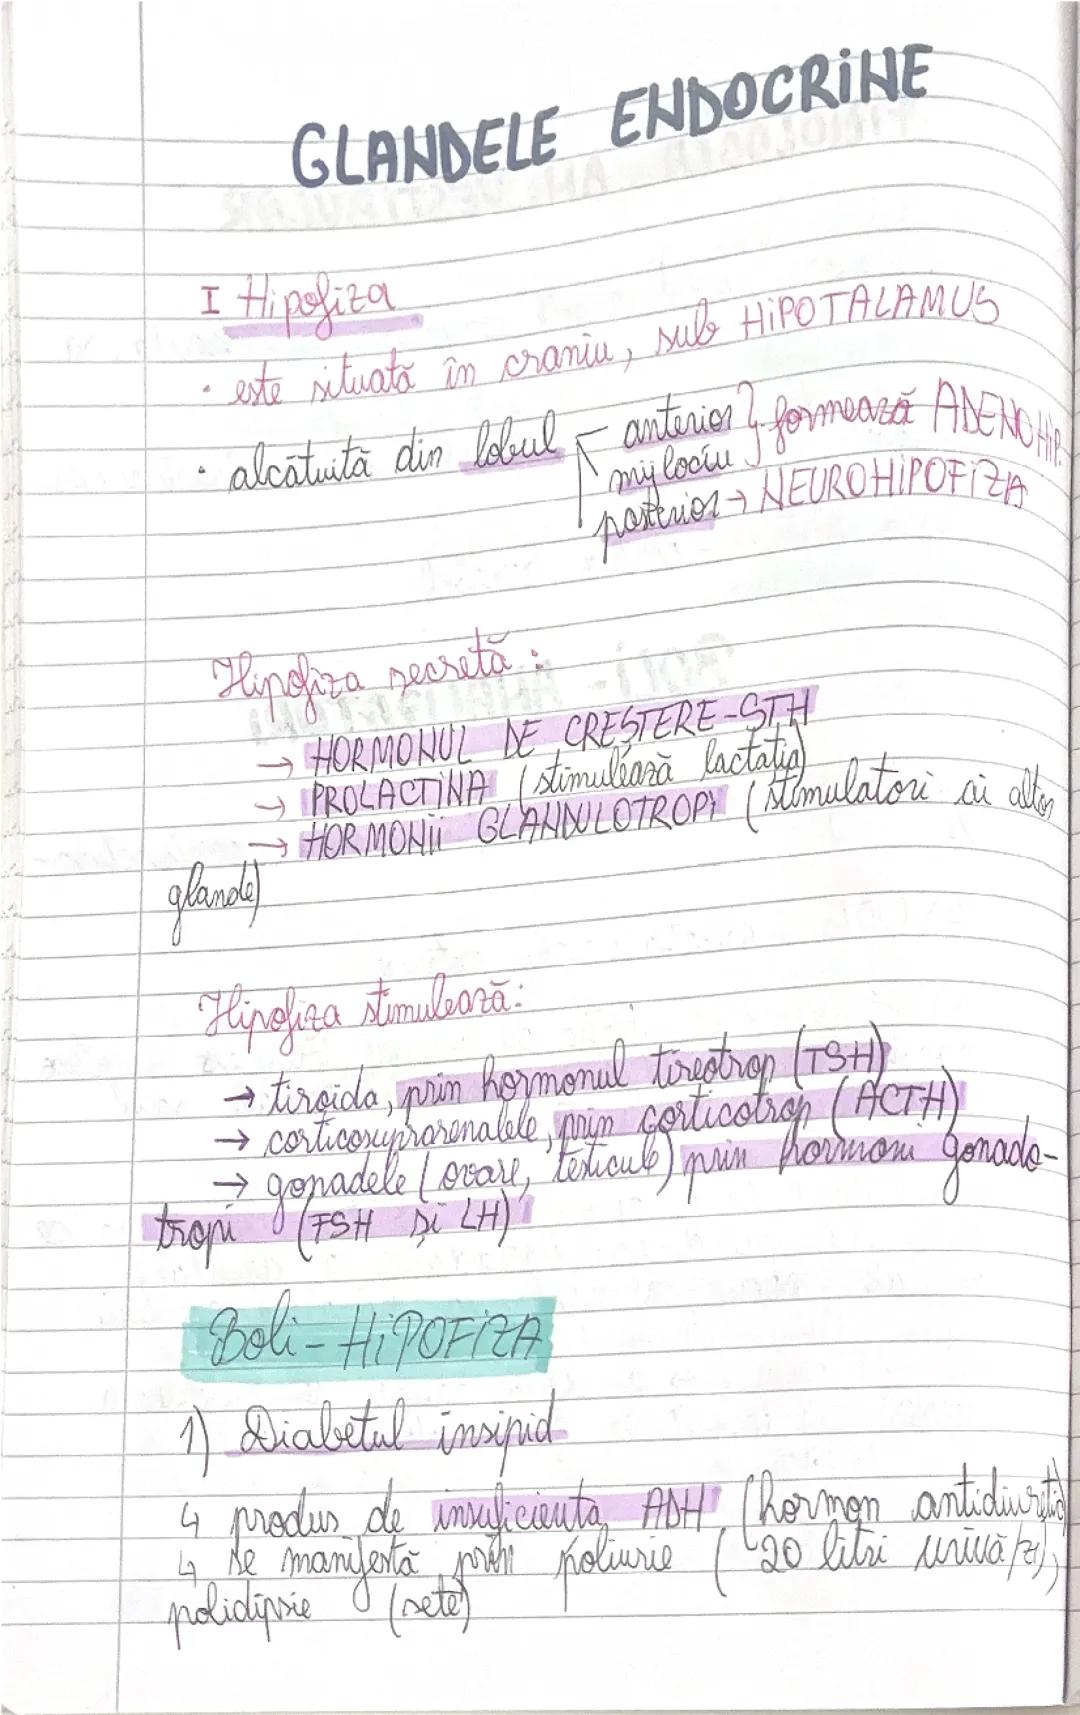 GLANDELE ENDOCRINE
I Hipofiza
• este situată în craniu, sub HIPOTALAMUS
• alcătuită din lobul anterior } formează ADENOHIP.
mijlociu
posterior → NEUROHIPOFIZA
Hipofiza secretă :
→ HORMONUL DE CREȘTERE-STH
→ PROLACTINA (stimulează lactația)
→ HORMONII GLANDULOTROPI (stimulatori ai altor
glande)
Hipofiza stimulează:
→ tiroida, prin hormonul tireotrop (TSH)
→ corticosuprarenalele, prin corticotrop (ACTH)
→ gonadele (ovare, testicule) prin hormoni gonado-
tropi (FSH și LH)
Boli - HIPOFIZA
1) Diabetul insipid
↳ produs de insuficiența ADH (hormon antidiuretic)
↳ se manifestă prin poliurie (20 litri urină/zi),
polidipsie (sete)